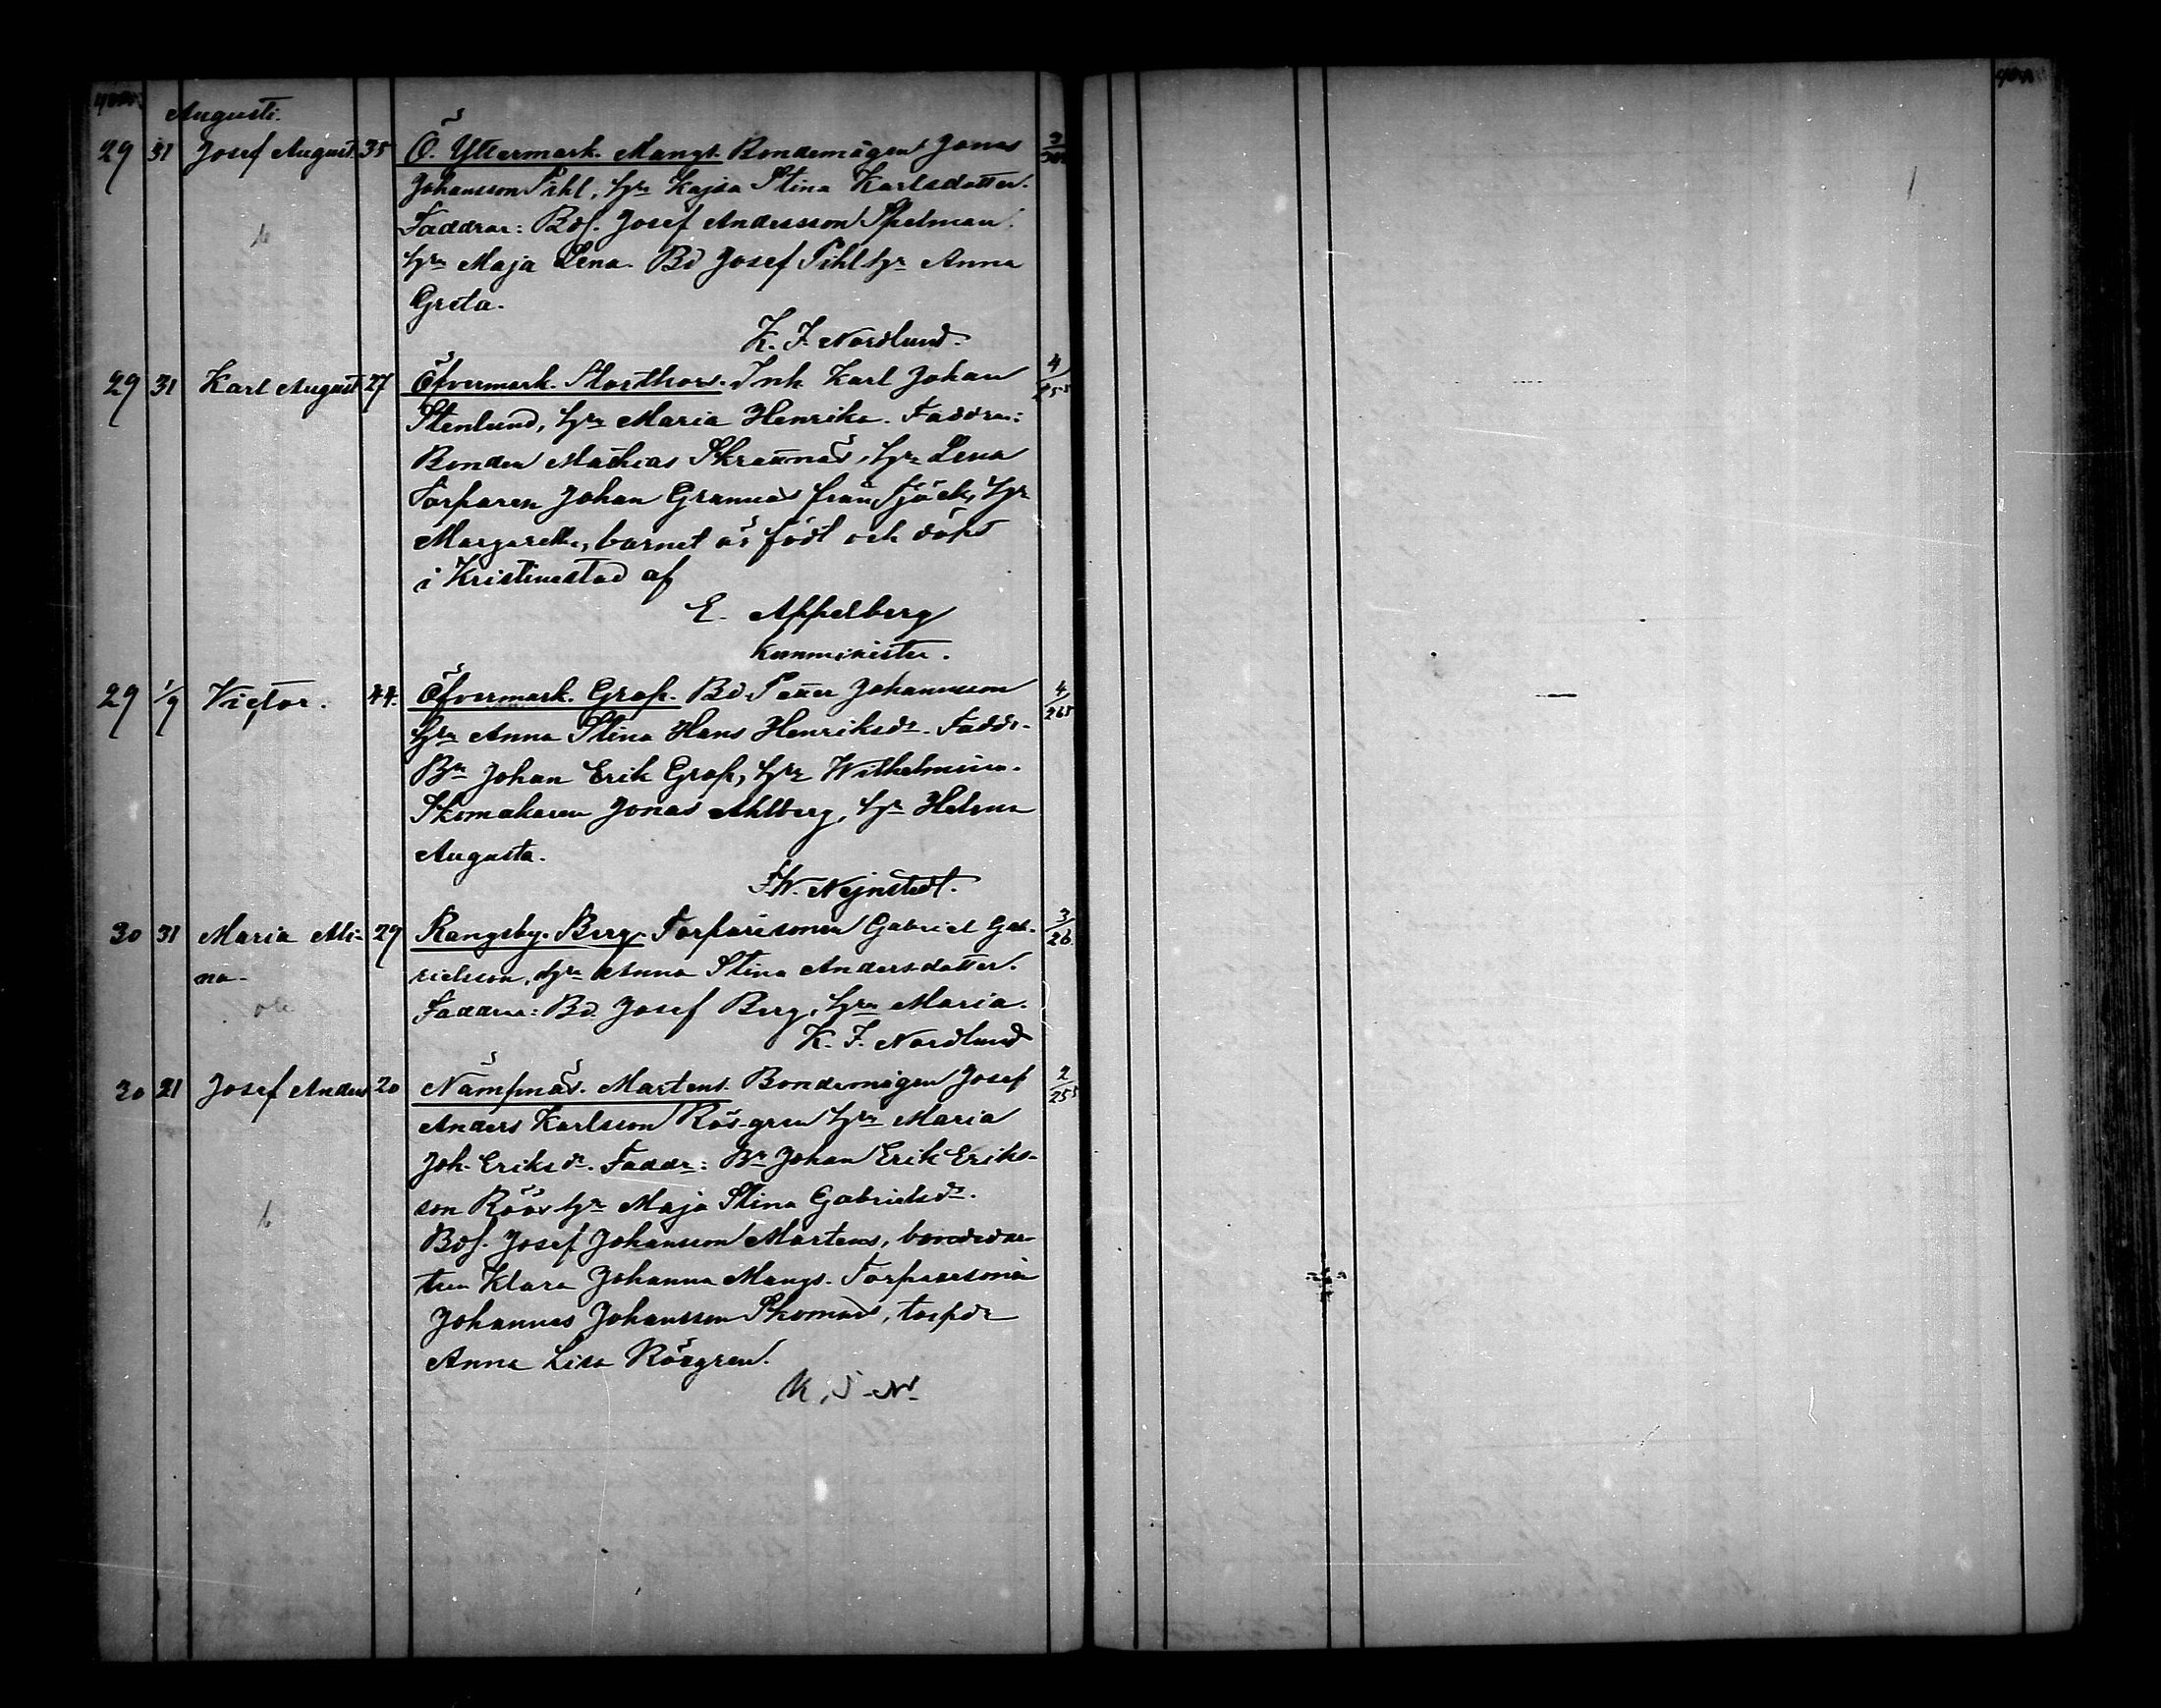 Augusti.
29 31 Josef August. 35 Ö. Yttermark. Mangs. Bondemågen Jonas 3
Johansson Pihl, hr Kajsa Stina Karlsdotter.
Faddrar: Bdf. Josef Andersson Spelman.
hr Maja Lena. Bd Josef Pihl hr Anna
Greta.
K. J. Nordlund.
29 31 Karl August 27 Öfvermark. Storthors. Inh Karl Johan 4/255
Stenlund, hr Maria Henrika. Faddrar:
Bonden Mathias Skrattnäs, hr Lena
Torparen Johan Grannas från Tjöck, hr
Margaretha, barnet är född och döpt
i Kristinestad af
E. Appelberg
Komminister.
29 1/9 Victor. 44. Öfvermark. Grop. Bd. Petter Johannsson 4/265
hr Anna Stina Hans Henriksdr. Faddr.
Bn Johan Erik Grop, hr Wilhelmina.
Skomakaren Jonas Ahlberg, hr Helena
Augusta.
F.W. Nejnstedt.
30 31 Maria Ali- 29 Rangsby. Berg. Torparesonen Gabriel Gab- 3/26
na- rielsson, hr Anna Stina Andersdotter.
Faddrar: Bd. Josef Berg, hr Maria.
K. J. Nordlund
30 21 Josef Anders 20 Nämpnäs. Martens. Bondemågen Josef 2/255
Anders Karlsson Rösgren hr Maria
Joh. Eriksdr. Faddr: Bn Johan Erik Eriks-
son Röös hr Maja Stina Gabrielsdr.
Bdf. Josef Johansson Martens, bondedot-
tren Klara Johanna Mangs. Torparesonen
Johannes Johansson Skomars, torpdr
Anna Lisa Rösgren.
K. J. N.